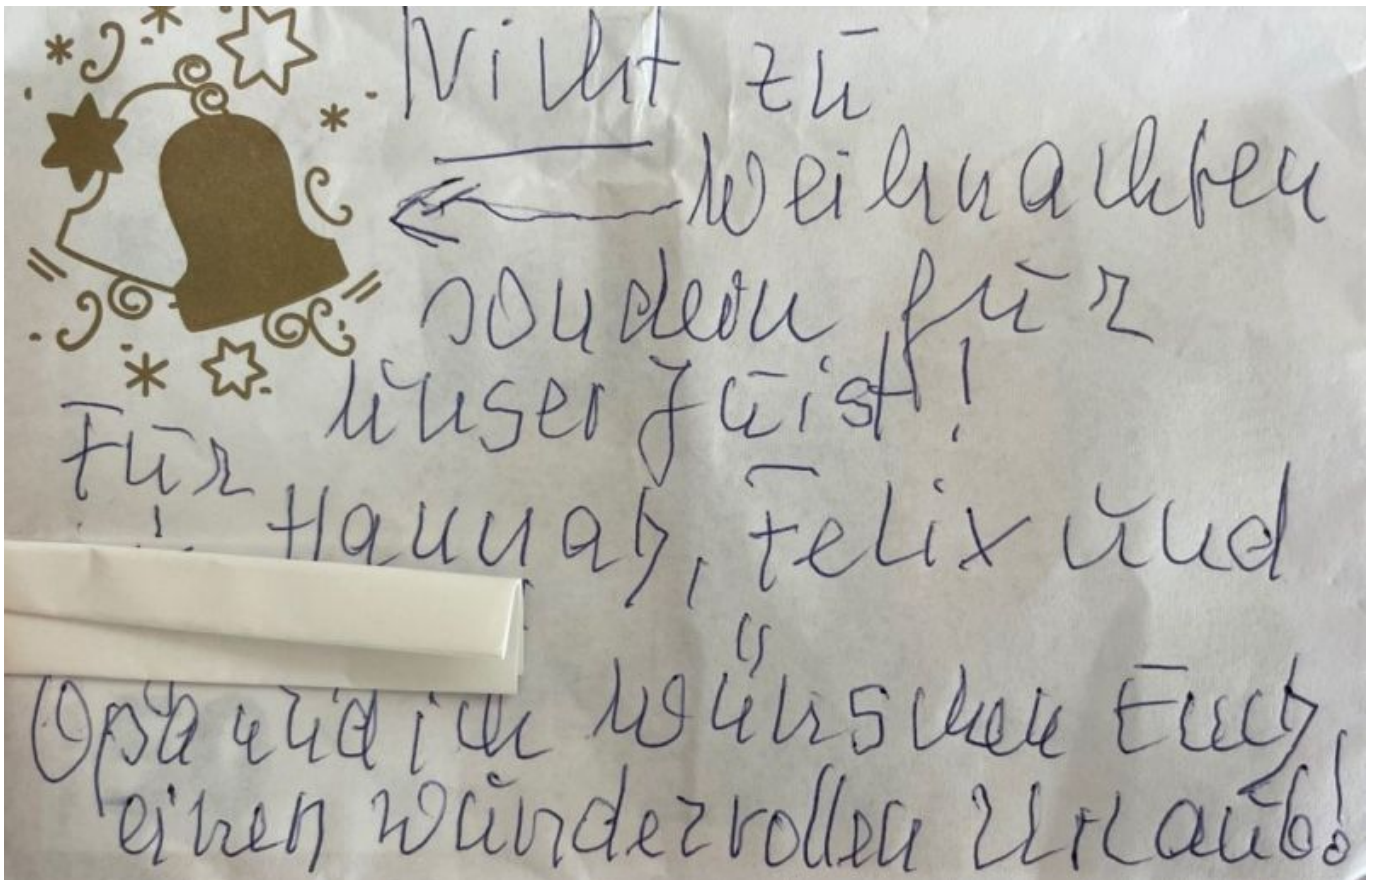 Nicht zu
Weihnachten
sondern für
unser Juist!
Für
Hannah, Felix und
Opa und ich wünschen Euch
einen wundervollen Urlaub!